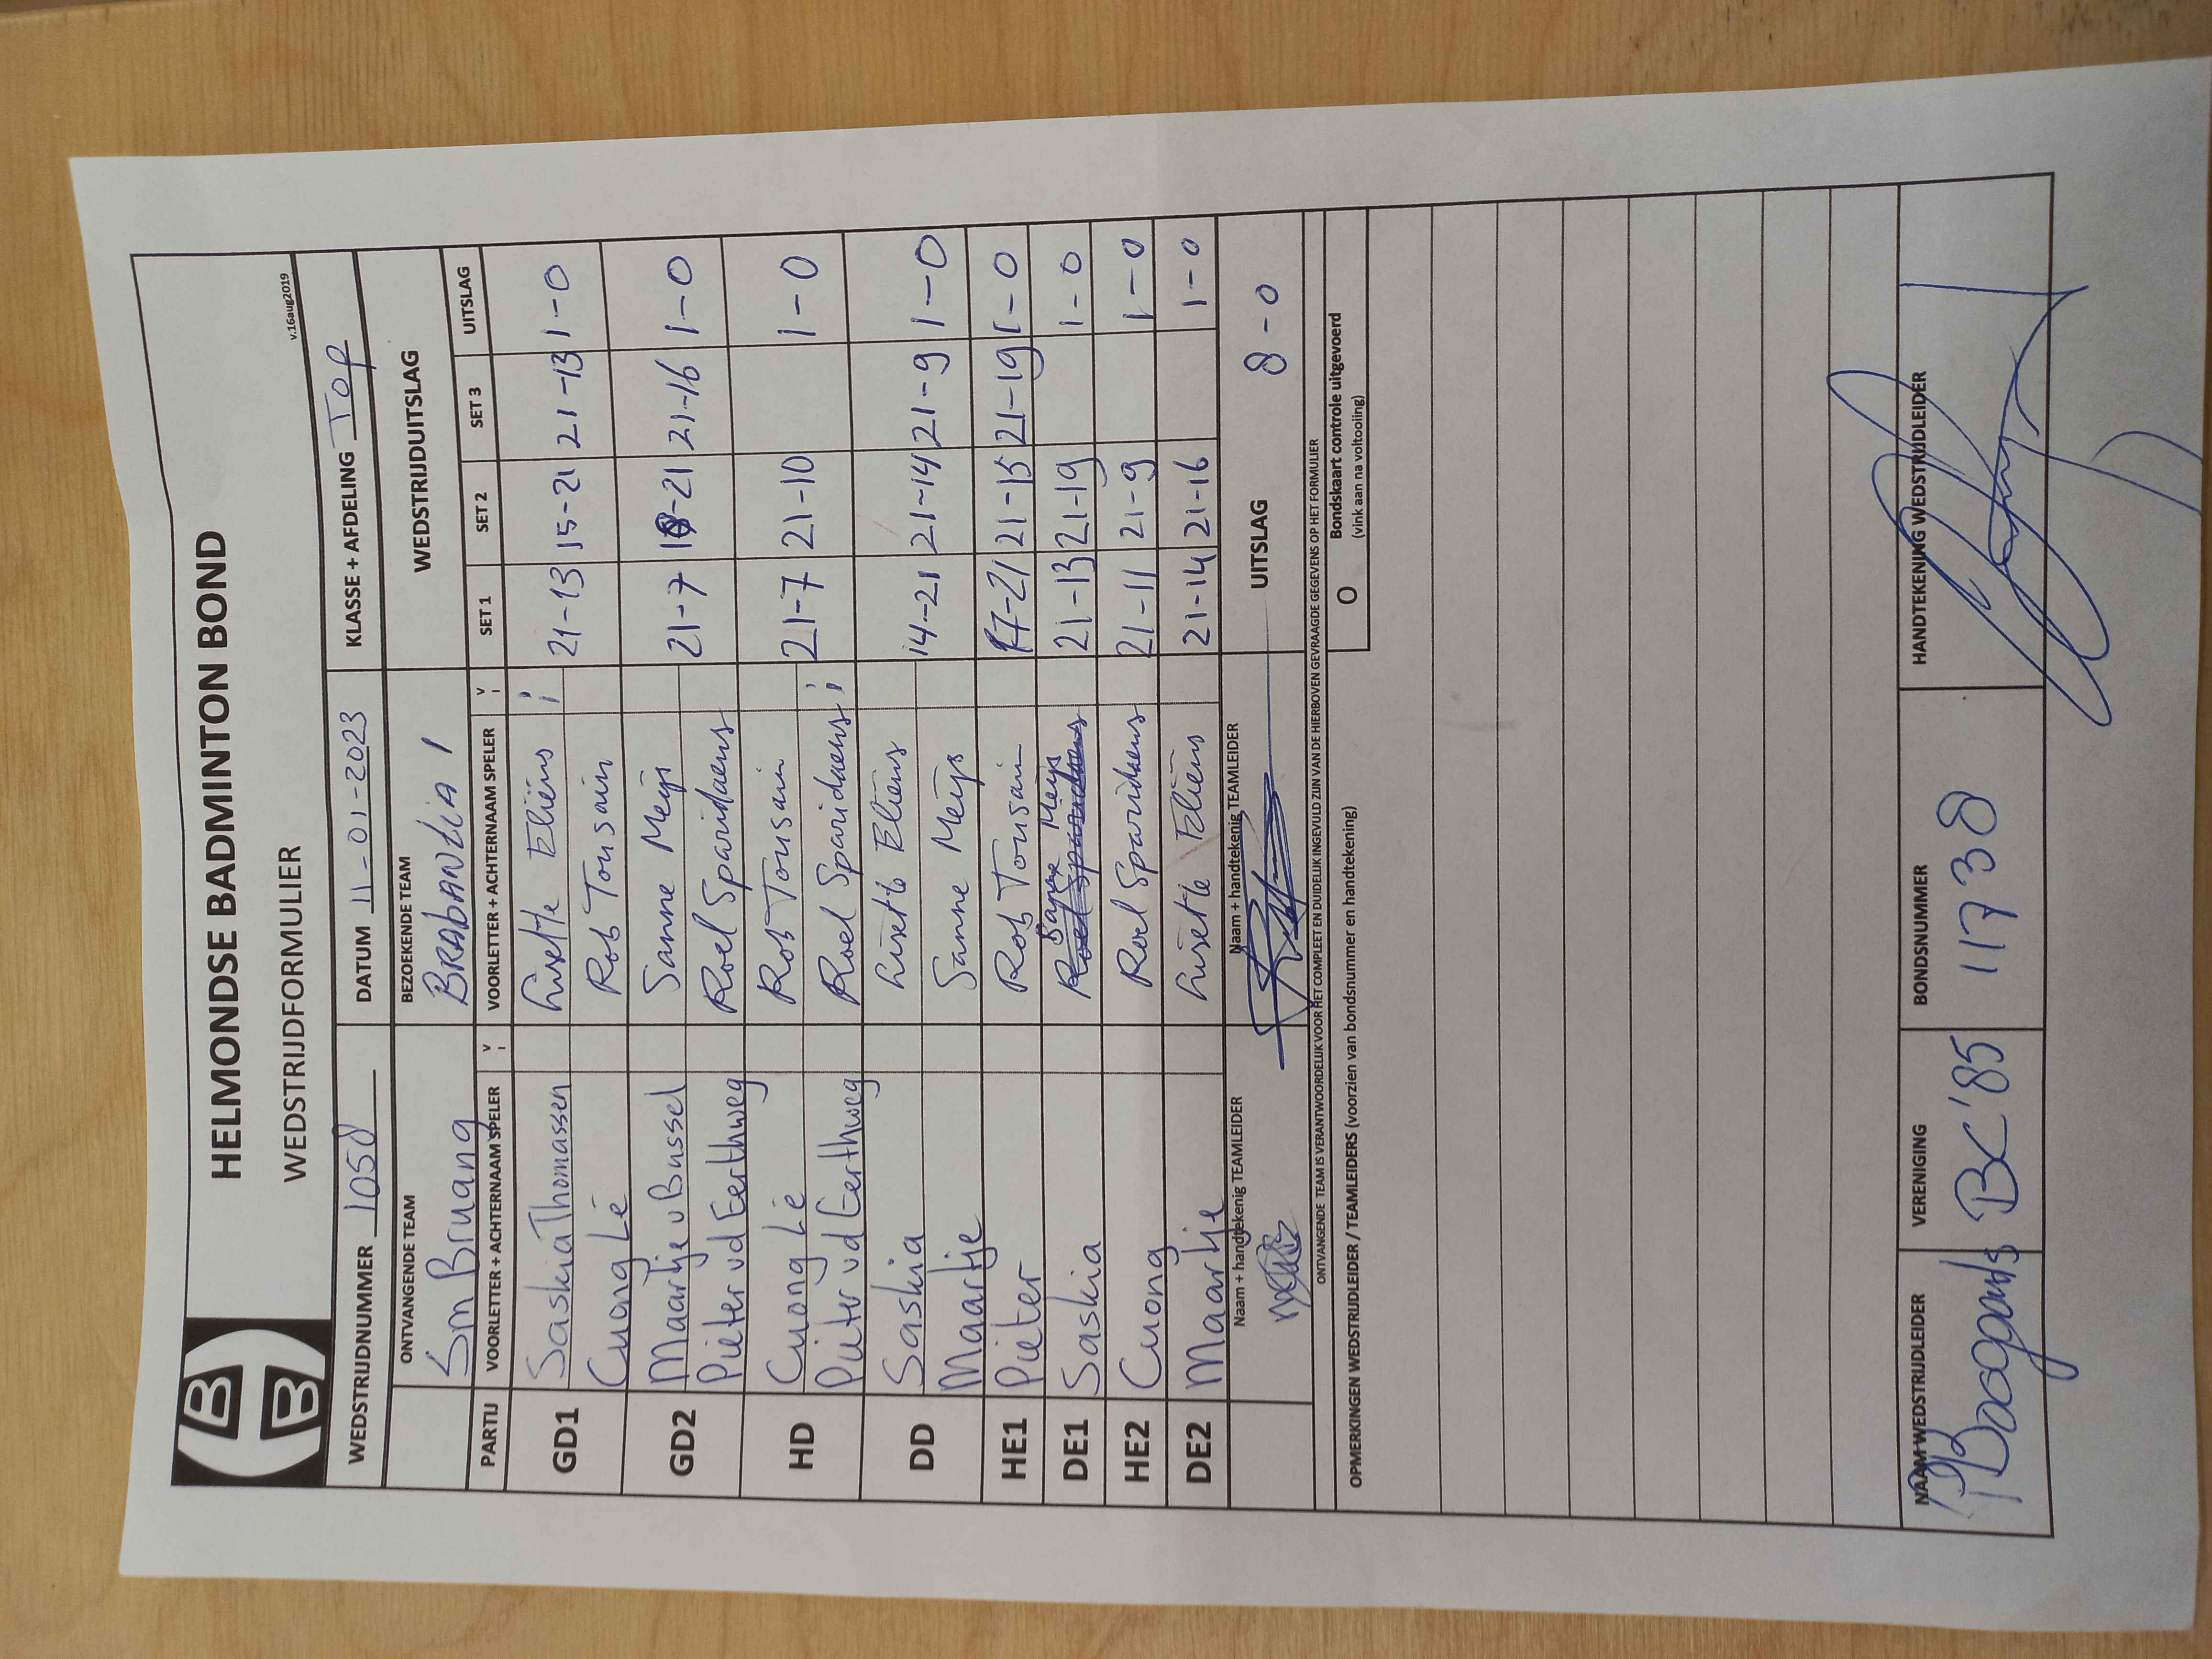 HELMONDSE BADMINTON BOND
WEDSTRIJDFORMULIER
v.16aug2019
WEDSTRIJDNUMMER 1058 DATUM 11-01-2023 KLASSE + AFDELING Top
ONTVANGENDE TEAM BEZOEKENDE TEAM WEDSTRIJDUITSLAG
SmBruang BRABANTIA 1
PARTIJ VOORLETTER + ACHTERNAAM SPELER v i VOORLETTER + ACHTERNAAM SPELER v i SET 1 SET 2 SET 3 UITSLAG
GD1 Saskia Thomassen Lisette Eliëns ; 21-13 15-21 21-13 1-0
Cuong Lê Rob Tousain
GD2 Maartje v Bussel Sanne Meijs 21-7 -21 21-16 1-0
Pieter vd Eerthweg Roel Sparidaens
HD Cuong Lê Rob Tousain 21-7 21-10 1-0
Pieter vd Eerthweg Roel Sparidaens ;
DD Saskia Lisette Eliens 14-21 21-14 21-9 1-0
Maartje Sanne Meijs
HE1 Pieter Rob Tousain 17-21 21-15 21-19 1-0
DE1 Saskia Sanne Meijs 21-13 21-19 1-0
HE2 Cuong Roel Sparidaens 21-11 21-9 1-0
DE2 Maartje Lisette Eliëns 21-14 21-16 1-0
Naam + handtekenig TEAMLEIDER Naam + handtekenig TEAMLEIDER UITSLAG 8-0
ONTVANGENDE TEAM IS VERANTWOORDELIJK VOOR HET COMPLEET EN DUIDELIJK INGEVULD ZIJN VAN DE HIERBOVEN GEVRAAGDE GEGEVENS OP HET FORMULIER
OPMERKINGEN WEDSTRIJDLEIDER / TEAMLEIDERS (voorzien van bondsnummer en handtekening)
O Bondskaart controle uitgevoerd
(vink aan na voltooiing)
NAAM WEDSTRIJDLEIDER VERENIGING BONDSNUMMER HANDTEKENING WEDSTRIJDLEIDER
P Boogaerds BC'85 11738